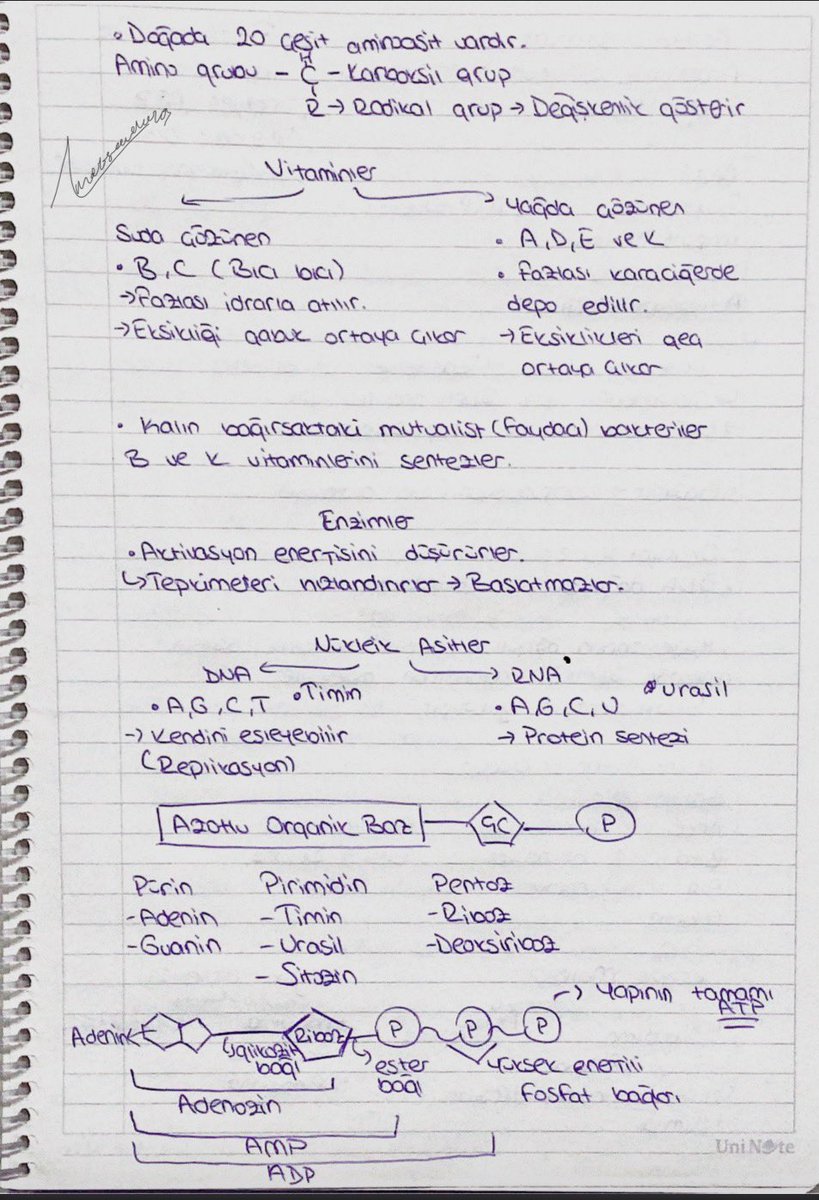 • Doğada 20 çeşit aminoasit vardır.
H
Amino grubu - C - Karboksil grup
R → Radikal grup → Değişkenlik gösterir
Vitaminler
Suda çözünen
• B, C (Bıcı bıcı)
→ Fazlası idrarla atılır.
→ Eksikliği çabuk ortaya çıkar
Yağda çözünen
• A, D, E ve K
• Fazlası karaciğerde
depo edilir.
→ Eksiklikleri geç
ortaya çıkar
• Kalın bağırsaktaki mutualist (faydacı) bakteriler
B ve K vitaminlerini sentezler.
Enzimler
• Aktivasyon enerjisini düşürürler.
↳ Tepkimeleri hızlandırırlar → Başlatmazlar.
Nükleik Asitler
DNA
• A, G, C, T • Timin
→ Kendini eşleyebilir
(Replikasyon)
RNA
• A, G, C, U • Urasil
→ Protein sentezi
Azotlu Organik Baz - 5C - P
Pürin
- Adenin
- Guanin
Pirimidin
- Timin
- Urasil
- Sitozin
Pentoz
- Riboz
- Deoksiriboz
→ Yapının tamamı
ATP
Adenin Riboz P P P
↳ glikozit
bağı
↳ ester
bağı
Yüksek enerjili
fosfat bağları
Adenozin
AMP
ADP
UniNote